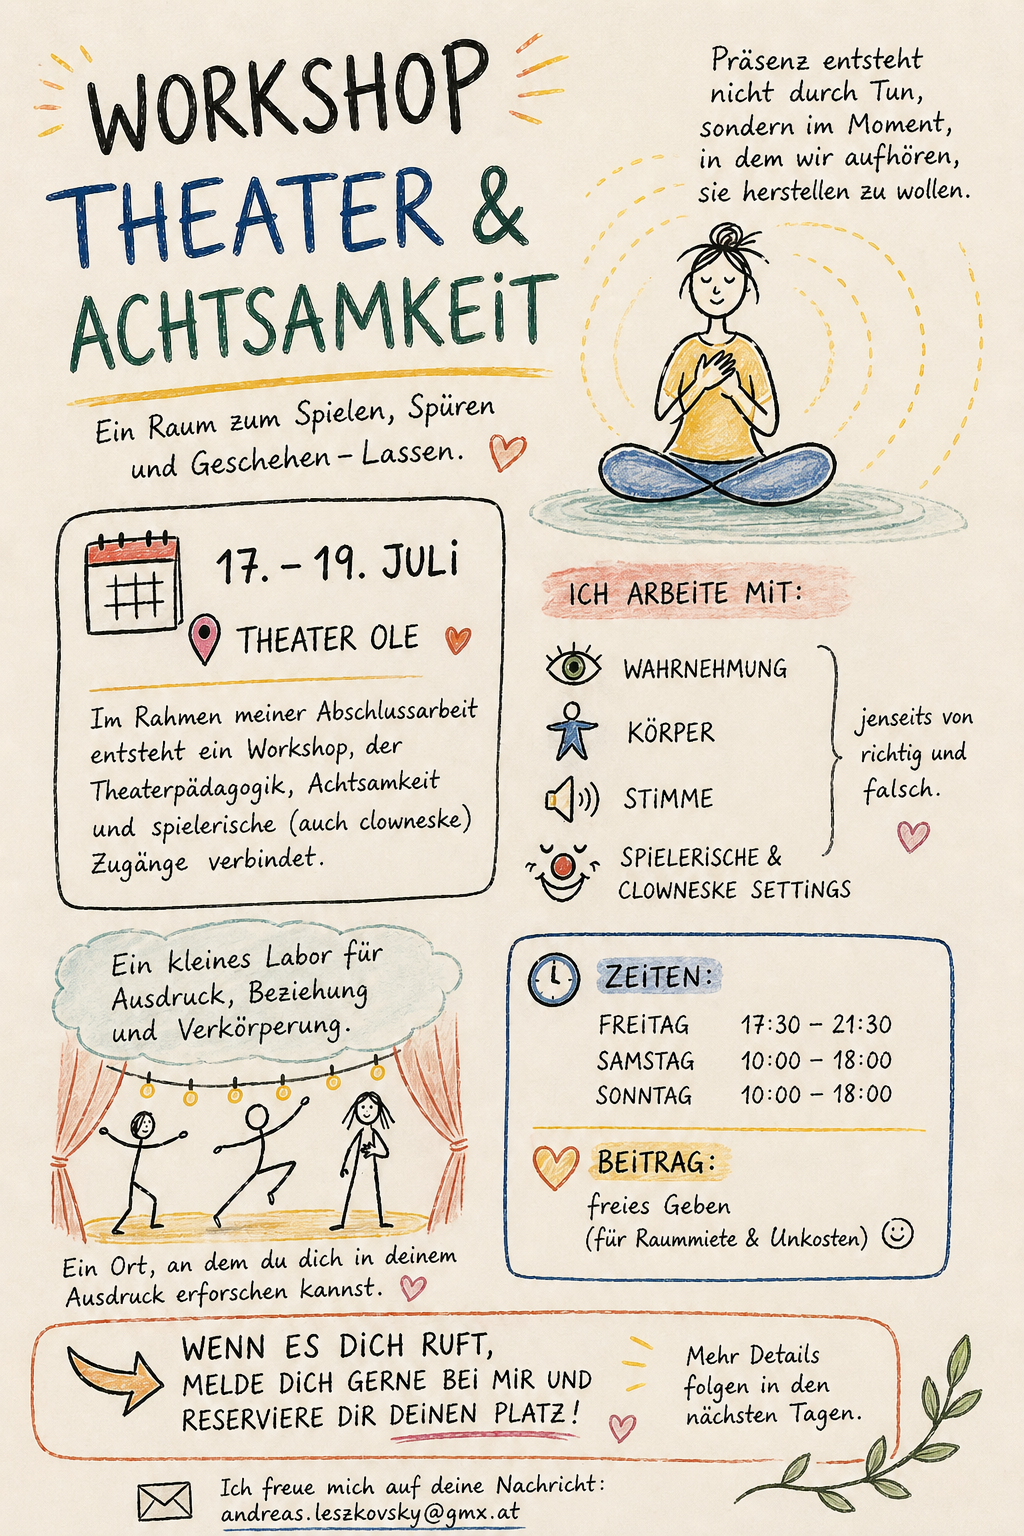 WORKSHOP
THEATER &
ACHTSAMKEIT
Ein Raum zum Spielen, Spüren
und Geschehen – Lassen.
Präsenz entsteht
nicht durch Tun,
sondern im Moment,
in dem wir aufhören,
sie herstellen zu wollen.
17. – 19. JULI
THEATER OLE
Im Rahmen meiner Abschlussarbeit
entsteht ein Workshop, der
Theaterpädagogik, Achtsamkeit
und spielerische (auch clowneske)
Zugänge verbindet.
ICH ARBEITE MIT:
WAHRNEHMUNG
KÖRPER
STIMME
SPIELERISCHE &
CLOWNESKE SETTINGS
jenseits von
richtig und
falsch.
Ein kleines Labor für
Ausdruck, Beziehung
und Verkörperung.
Ein Ort, an dem du dich in deinem
Ausdruck erforschen kannst.
ZEITEN:
FREITAG 17:30 – 21:30
SAMSTAG 10:00 – 18:00
SONNTAG 10:00 – 18:00
BEITRAG:
freies Geben
(für Raummiete & Unkosten)
WENN ES DICH RUFT,
MELDE DICH GERNE BEI MIR UND
RESERVIERE DIR DEINEN PLATZ!
Mehr Details
folgen in den
nächsten Tagen.
Ich freue mich auf deine Nachricht:
andreas.leszkovsky@gmx.at